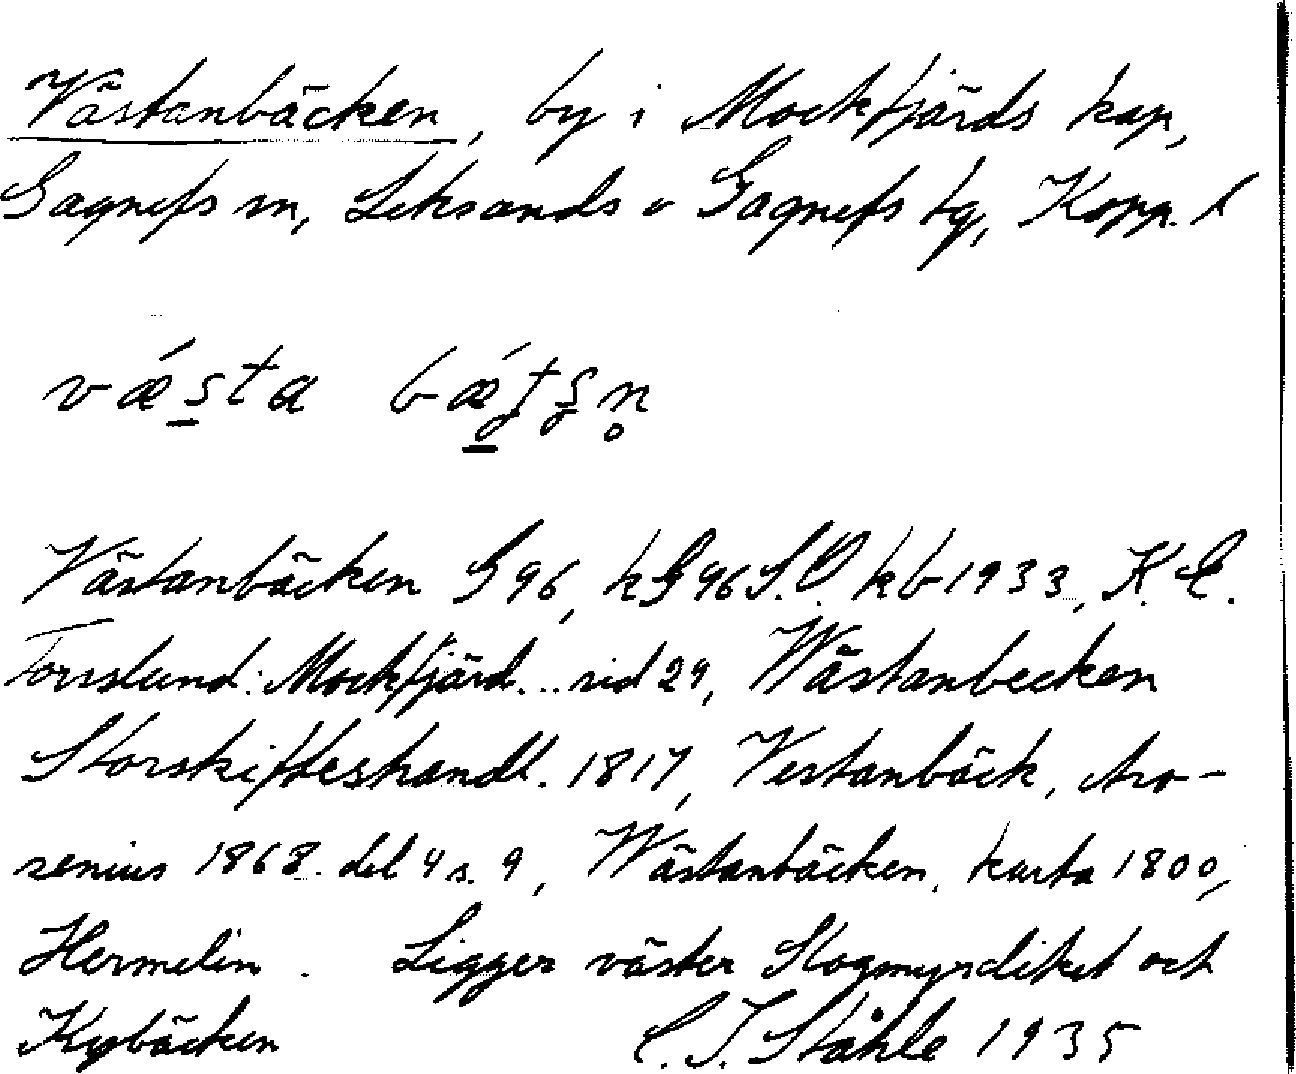 Västanbäcken, by i Mockfjärds kap,
Gagnefs sn, Leksands o Gagnefs tg, Kopp. l
vǽsta bǽtsn̥
Västanbäcken G 96, k G 96 S.O. kb 1933, K. E.
Forsslund: Mockfjärd... sid 29, Wästanbecken
Storskifteshandl. 1817, Vestanbäck, Aro-
senius 1868. del 4 s. 9, Wästanbäcken, karta 1800,
Hermelin. Ligger väster Skogmyrdiket och
Kybäcken C. I. Ståhle 1935